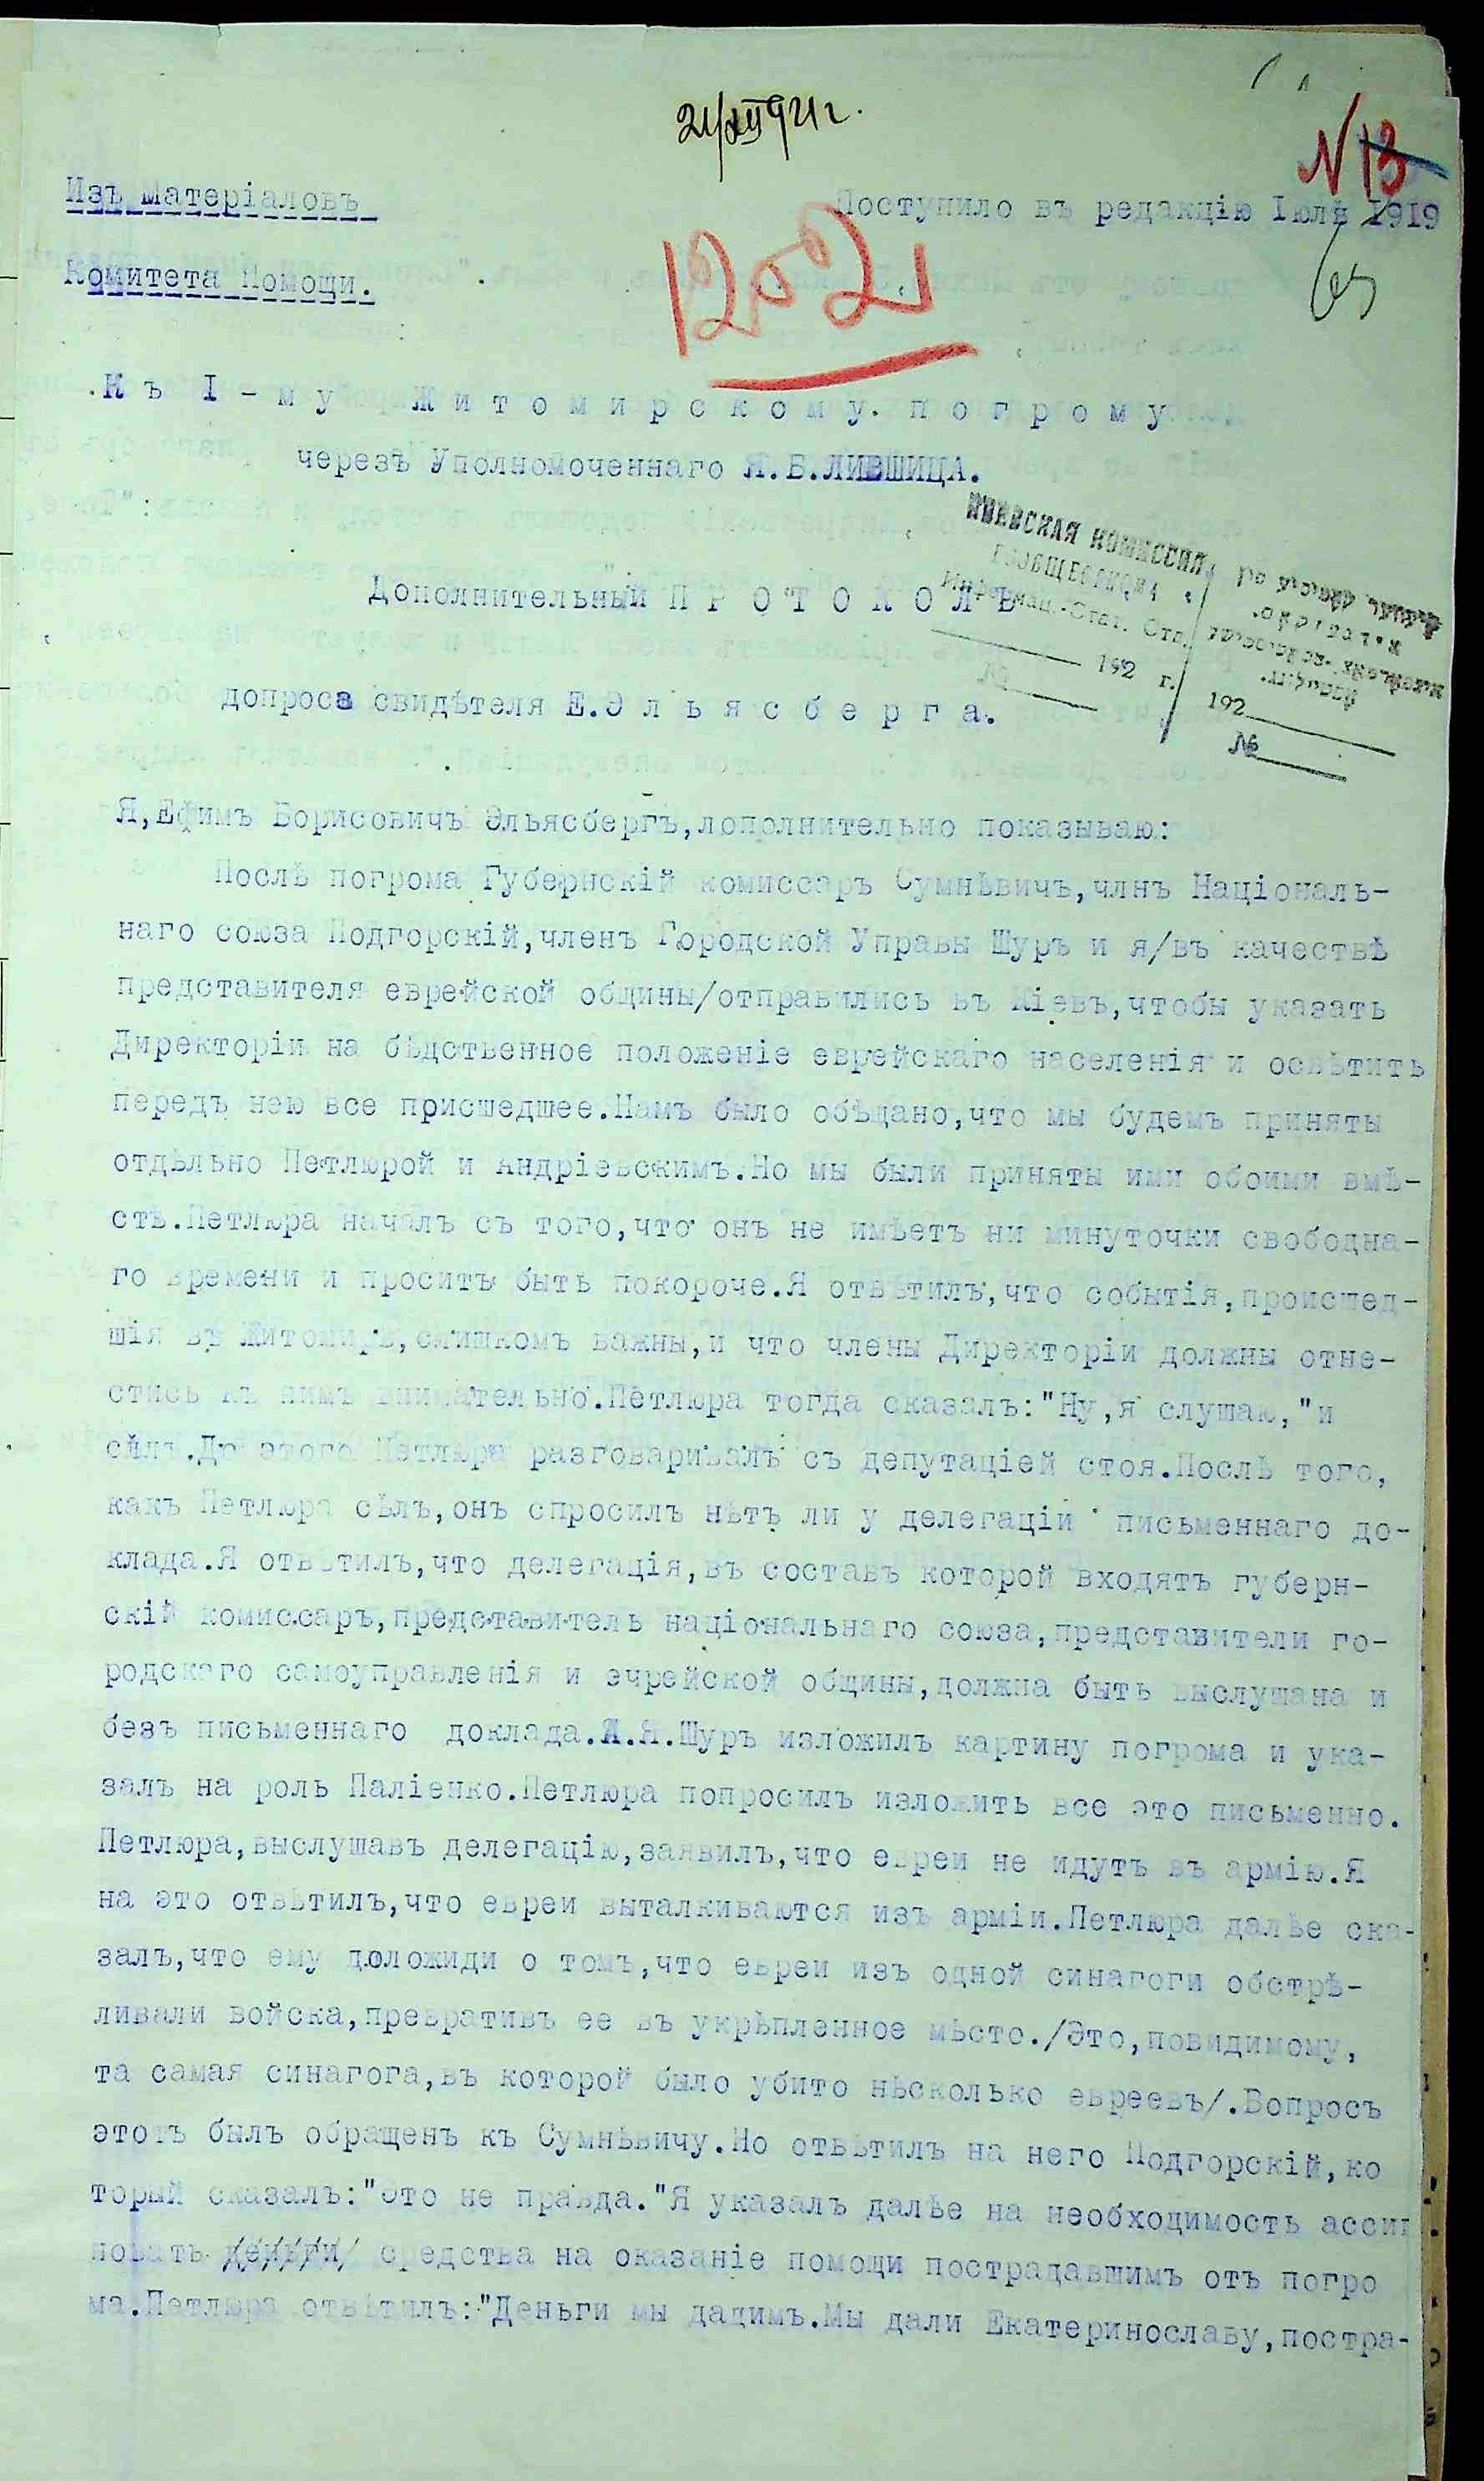 21/XII 921 г.
N 13
Изъ Матеріаловъ
Поступило въ редакцію Іюль 1919
Комитета Помощи.
1202
65
Къ I-му Житомирскому погрому
черезъ Уполномоченнаго Я.Б.ЛИВШИЦА.
КИЕВСКАЯ КОМИССИЯ
Информац.-Стат. Отд.
192 г.
№
192
№
Дополнительный ПРОТОКОЛЪ
допроса свидѣтеля Е.Эльясберга.
Я,Ефимъ Борисовичъ Эльясбергъ,лополнительно показываю:
Послѣ погрома Губернскій комиссаръ Сумнѣвичъ,члнъ Націоналъ-
наго союза Подгорскій,членъ Городской Управы Шуръ и я/въ качествѣ
представителя еврейской общины/отправились въ Кіевъ,чтобы указать
Директоріи на бѣдственное положеніе еврейскаго населенія и освѣтить
передъ нею все присшедшее.Намъ было обѣщано,что мы будемъ приняты
отдѣльно Петлюрой и Андріевскимъ.Но мы были приняты ими обоими вмѣ-
стѣ.Петлюра началъ съ того,что онъ не имѣетъ ни минуточки свободна-
го времени и проситъ быть покороче.Я отвѣтилъ,что событія,происшед-
шія въ Житомирѣ,слишкомъ важны,и что члены Директоріи должны отне-
стись къ нимъ внимательно.Петлюра тогда сказалъ:"Ну,я слушаю,"и
сѣлъ.До этого Петлюра разговаривалъ съ депутаціей стоя.Послѣ того,
какъ Петлюра сѣлъ,онъ спросилъ нѣтъ ли у делегаціи письменнаго до-
клада.Я отвѣтилъ,что делегація,въ составъ которой входятъ губерн-
скій комиссаръ,представитель національнаго союза,представители го-
родского самоуправленія и эчрейской общины,должна быть выслушана и
безъ письменнаго доклада.Я.Я.Шуръ изложилъ картину погрома и ука-
залъ на роль Паліенко.Петлюра попросилъ изложить все это письменно.
Петлюра,выслушавъ делегацію,заявилъ,что евреи не идутъ въ армію.Я
на это отвѣтилъ,что евреи выталкиваются изъ арміи.Петлюра далѣе ска-
залъ,что ему доложиди о томъ,что евреи изъ одной синагоги обстрѣ-
ливали войска,превративъ ее въ укрѣпленное мѣсто./Это,повидимому,
та самая синагога,въ которой было убито нѣсколько евреевъ/.Вопросъ
этотъ былъ обращенъ къ Сумнѣвичу.Но отвѣтилъ на него Подгорскій,ко
торый сказалъ:"Это не правда."Я указалъ далѣе на необходимость ассиг
новать деньги средства на оказаніе помощи пострадавшимъ отъ погро
ма.Петлюра отвѣтилъ:"Деньги мы дадимъ.Мы дали Екатеринославу,постра-